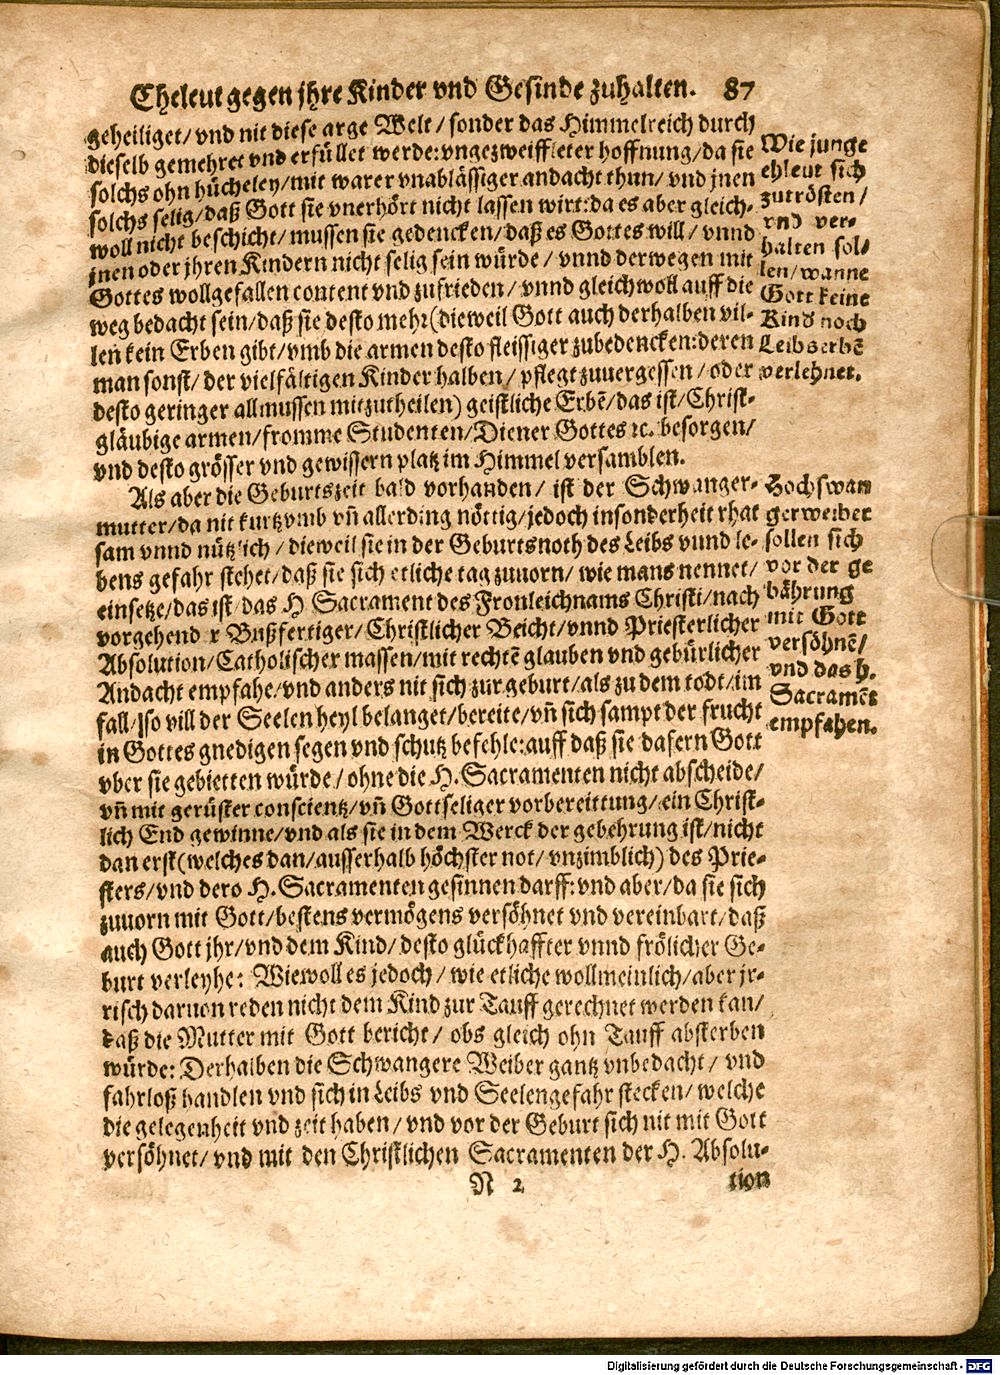 Eheleut gegen jhre Kinder vnd Gesinde zuhalten. 87
geheiliget/ vnd nit diese arge Welt / sonder das Himmelreich durch
dieselb gemehret vnd erfüllet werde: vngezweiffleter hoffnung/ da sie
solchs ohn hücheley/ mit warer vnablässiger andacht thun/ vnd jnen
solchs selig/ daß Gott sie vnerhört nicht lassen wirt: da es aber gleich-
woll nicht beschicht/ mussen sie gedencken/ daß es Gottes will / vnnd
jnen oder jhren Kindern nicht selig sein würde / vnnd derwegen mit
Gottes wollgefallen content vnd zufrieden / vnnd gleichwoll auff die
weg bedacht sein/ daß sie desto mehr (dieweil Gott auch derhalben vil-
len kein Erben gibt/ vmb die armen desto fleissiger zubedencken: deren
man sonst/ der vielfältigen Kinder halben / pflegt zuuergessen / oder
desto geringer allmussen mitzutheilen) geistliche Erbē/ das ist/ Christ-
gläubige armen/ fromme Studenten/ Diener Gottes ꝛc. besorgen/
vnd desto grösser vnd gewissern platz im Himmel versamblen.
Wie junge
ehleut sich
zutrösten /
vnd ver-
halten sol-
len/ wanne
Gott keine
Kind noch
Leibserbē
verlehnet.
Als aber die Geburtszeit bald vorhanden / ist der Schwanger-
mutter/ da nit kurtz vmb vn̄ allerding nöttig/ jedoch insonderheit rhat
sam vnnd nützlich / dieweil sie in der Geburtsnoth des Leibs vund le-
bens gefahr stehet/ daß sie sich etliche tag zuuorn/ wie mans nennet/
einsetze/ das ist/ das H Sacrament des Fronleichnams Christi/ nach
vorgehend r Bußfertiger/ Christlicher Beicht/ vnnd Priesterlicher
Absolution/ Catholischer massen/ mit rechtē glauben vnd gebürlicher
Andacht empfahe/ vnd anders nit sich zur geburt/ als zu dem todt/ im
fall/ so vill der Seelen heyl belanget/ bereite/ vn̄ sich sampt der frucht
in Gottes gnedigen segen vnd schutz befehle: auff daß sie dafern Gott
vber sie gebietten würde / ohne die H. Sacramenten nicht abscheide/
vn̄ mit gerüster conscientz/ vn̄ Gottseliger vorbereittung/ ein Christ-
lich End gewinne/ vnd als sie in dem Werck der gebehrung ist/ nicht
dan erst (welches dan/ ausserhalb höchster not/ vnzimblich) des Prie-
sters/ vnd dero H. Sacramenten gesinnen darff: vnd aber/ da sie sich
zuuorn mit Gott/ bestens vermögens versöhnet vnd vereinbart/ daß
auch Gott jhr/ vnd dem Kind/ desto glückhaffter vnnd frölicher Ge-
burt verleyhe: Wiewoll es jedoch / wie etliche wollmeinlich/ aber jr-
risch daruon reden nicht dem Kind zur Tauff gerechnet werden kan/
daß die Mutter mit Gott bericht / obs gleich ohn Tauff absterben
würde: Derhalben die Schwangere Weiber gantz vnbedacht / vnd
fahrloß handlen vnd sich in Leibs vnd Seelengefahr stecken/ welche
die gelegenheit vnd zeit haben / vnd vor der Geburt sich nit mit Gott
versöhnet/ vnd mit den Christlichen Sacramenten der H. Absolu-
Hochswan
gerweiber
sollen sich
vor der ge
bährung
mit Gott
versöhnē/
vnd das H.
Sacramēt
empfahen.
N 2 tion
Digitalisierung gefördert durch die Deutsche Forschungsgemeinschaft - DFG